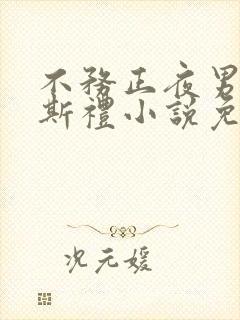 不務正夜男
斯禮小說免
况元媛